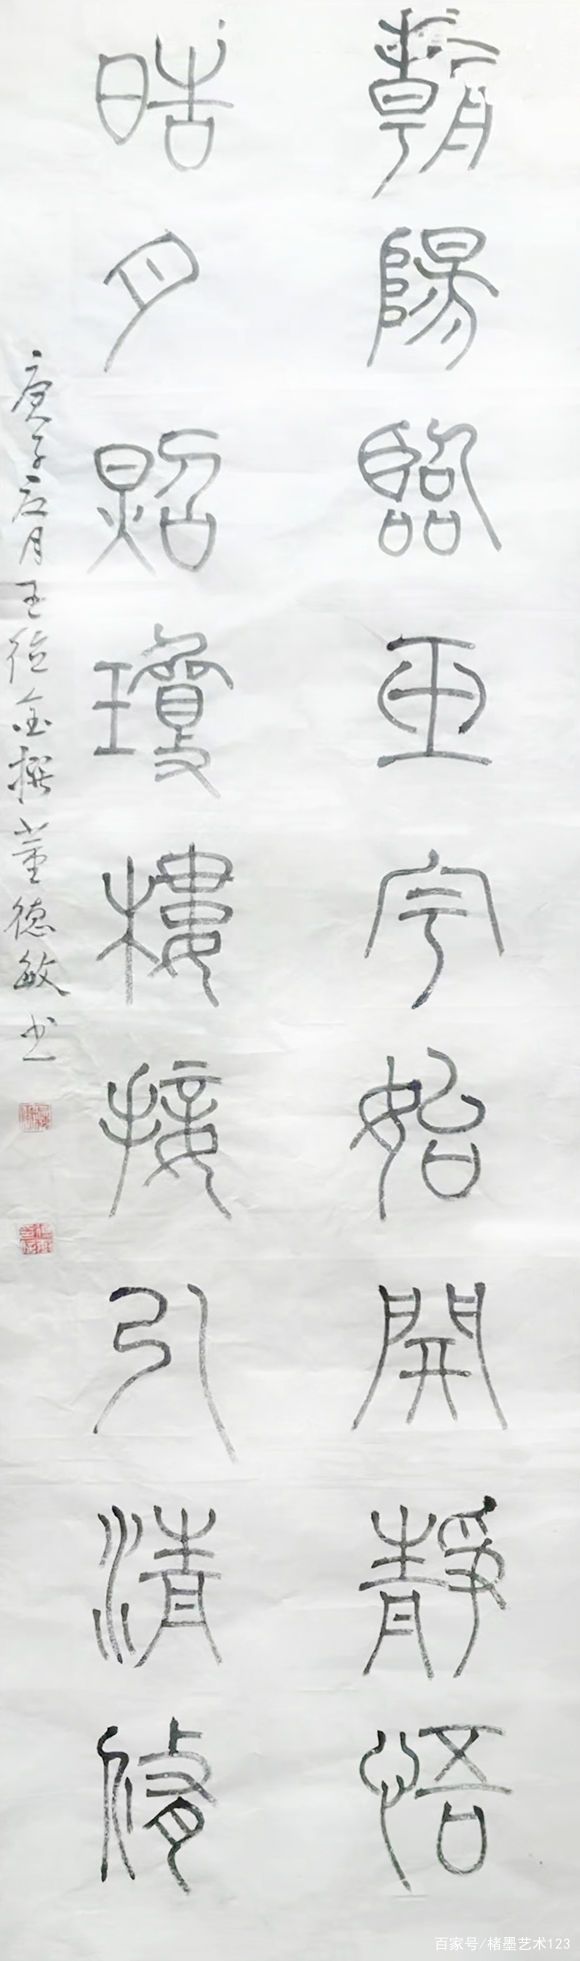 朝陽臨玉宇始開靜悟
晧月照瓊樓接引清修
庚子 月王德金撰董德敏书
百家号/楮墨艺术123